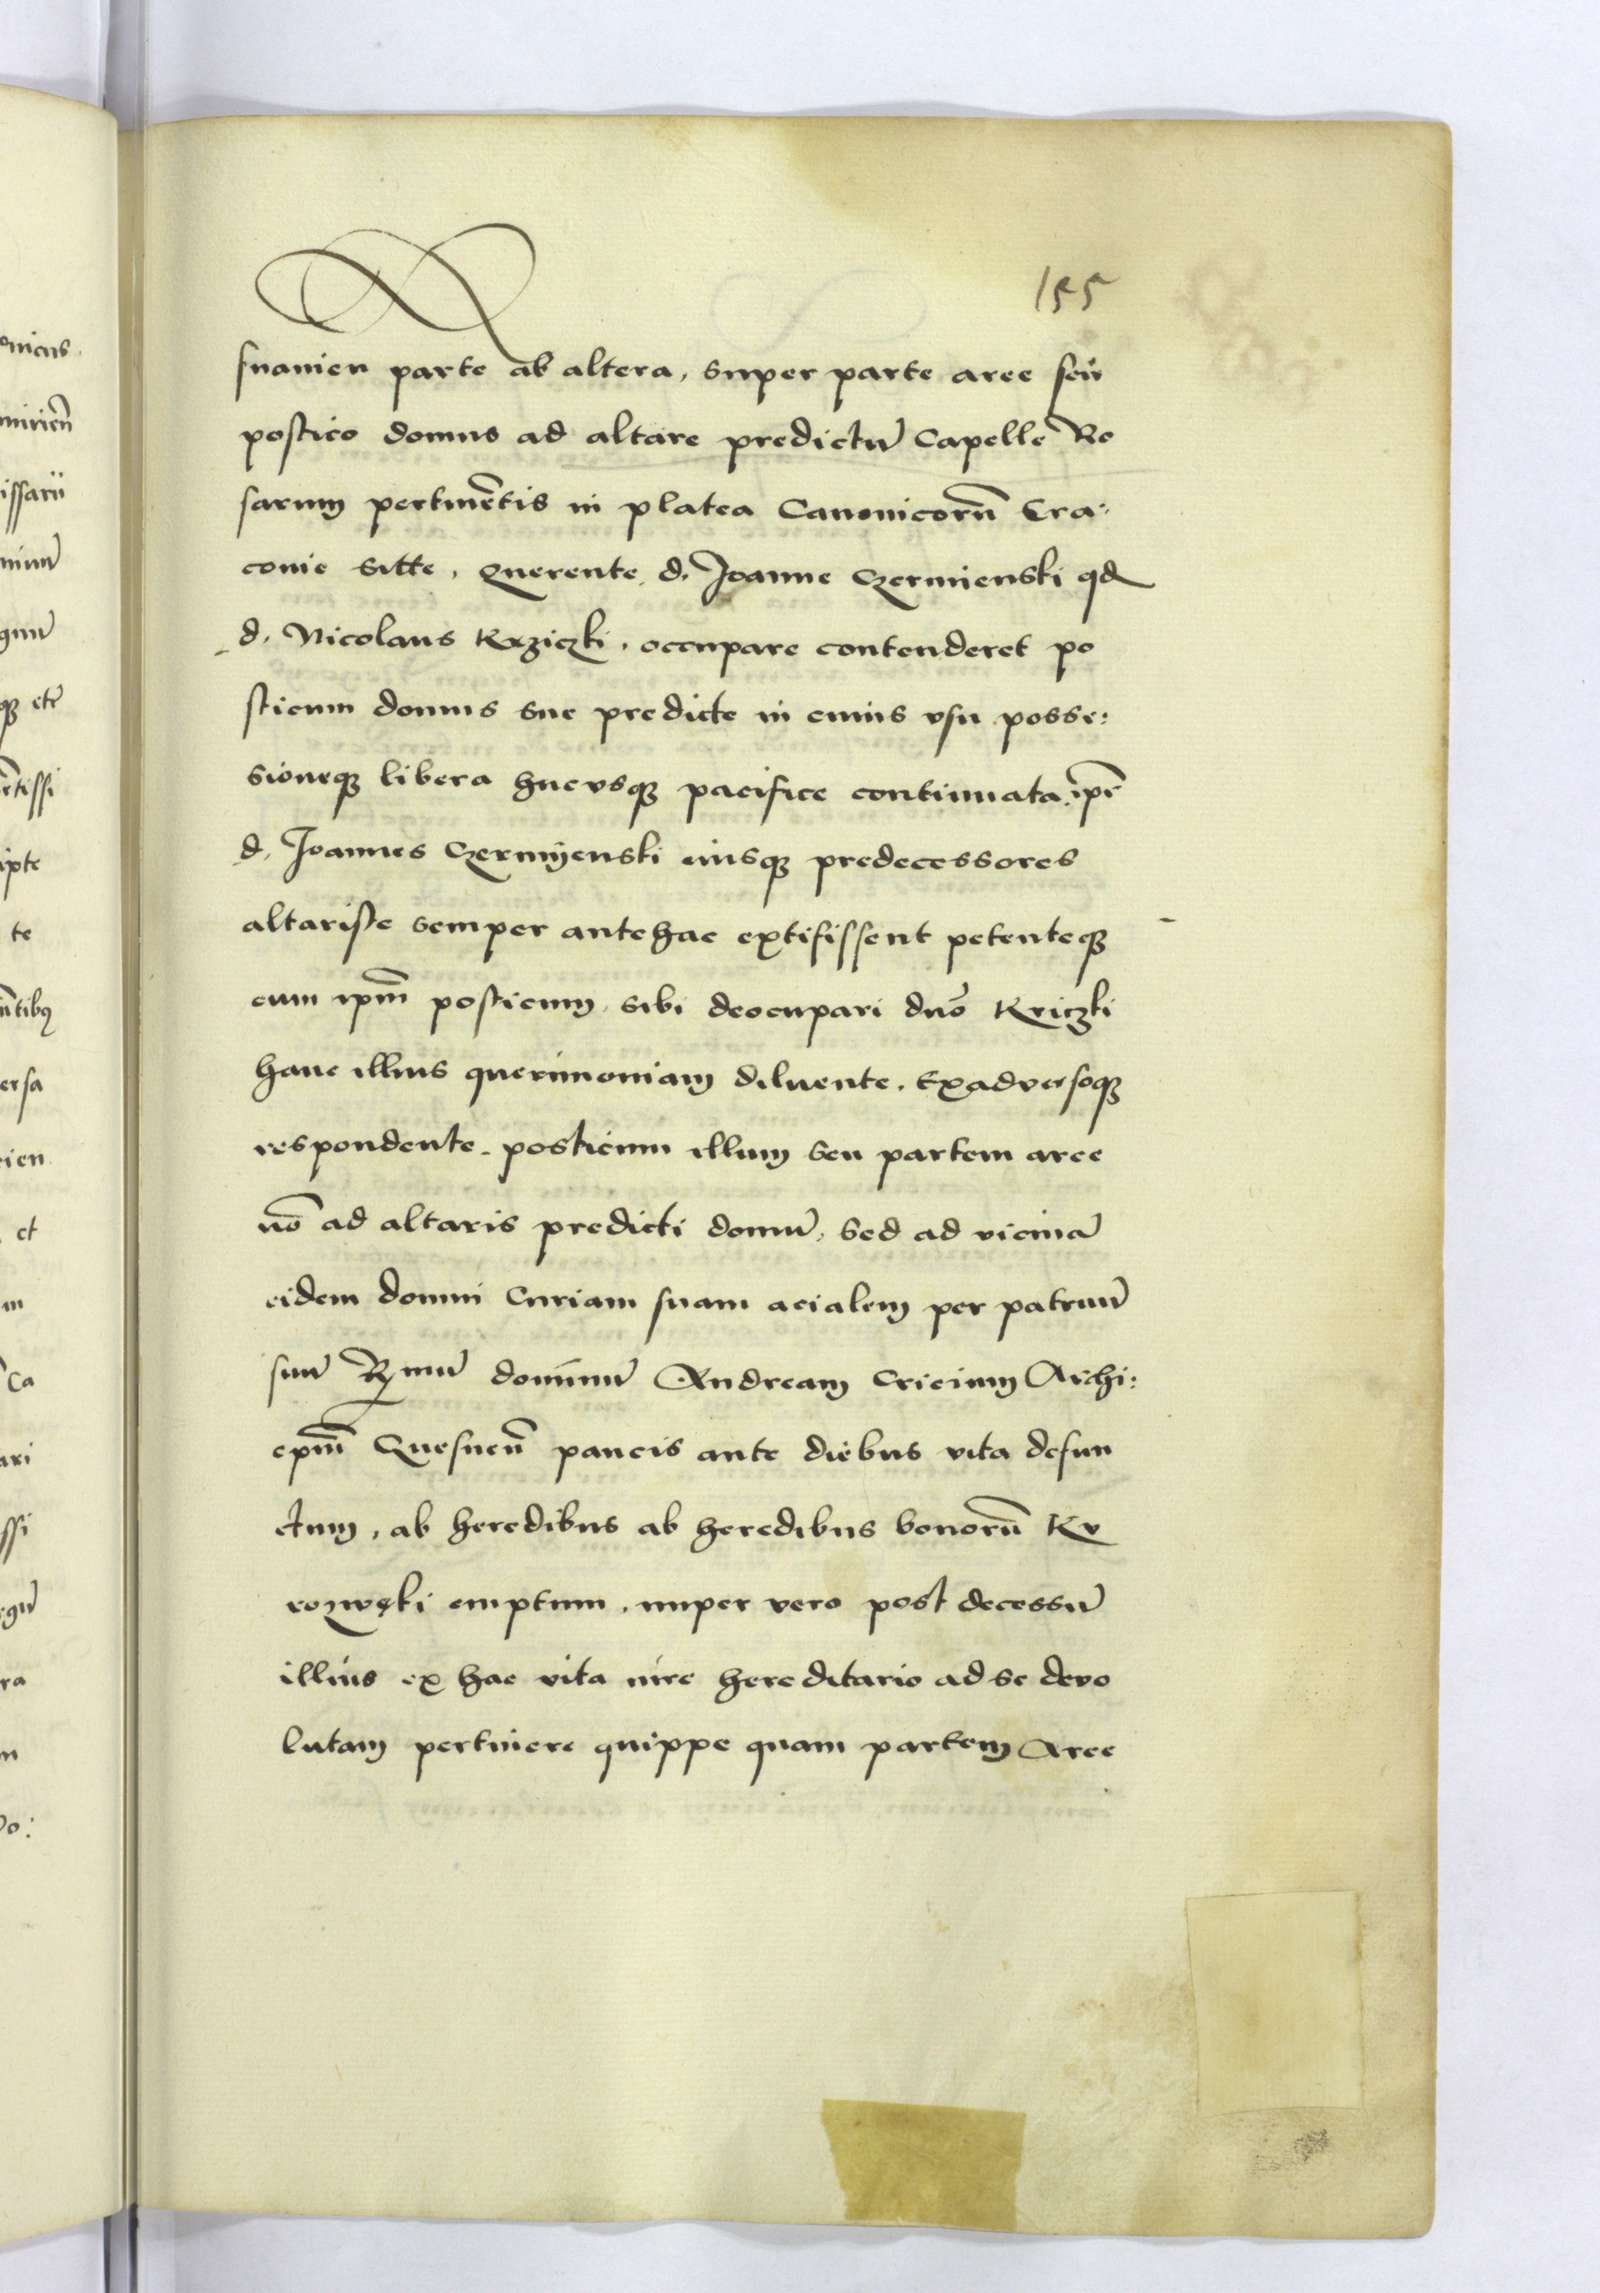 155
snanien parte ab altera, super parte aree seu
postico domus ad altare predictū Capelle Ro
sarum pertinētis in platea Canonicorū Cra:
couie sitte, querente d. Joanne Czermienski qd
d. Nicolaus Krziczki, occupare contenderet po
sticum domus sue predicte in cuius vsu posse:
sioneqꝫ libera hucvsqꝫ pacifice continuata, ipī
d. Joannes Czermyenski eiusqꝫ predecessores
altariste semper antehac extitissent petenteqꝫ
eum ipm̄ posticum, sibi deocupari dnō Kriczki
hanc illius querimoniam diluente, Exadversoqꝫ
respondente, posticum illum seu partem aree
nō ad altaris predicti domū, sed ad vicinā
eidem domui Curiam suam acialem per patruū
suū Rmū dominū Andream Cricium Archi:
epm̄ Gnesnen̄ paucis ante diebus vita defun
ctum, ab heredibus ab heredibus bonorū Kv
rozwęki emptum, nuper vero post decessū
illius ex hac vita iure hereditario ad se devo
lutam pertinere quippe quam partem Aree